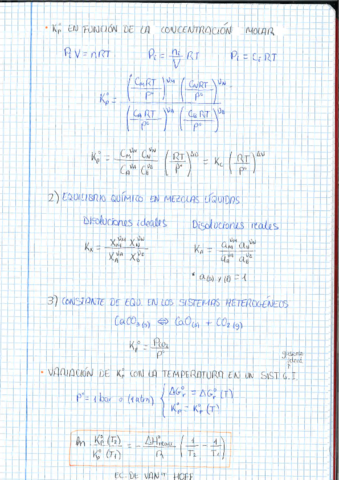 · Kp° EN FUNCIÓN DE LA CONCENTRACIÓN MOLAR
Pi V = nRT    Pi = ni/V RT    Pi = Ci RT
Kp° = (CM RT / P°)^νM (CN RT / P°)^νN / (CA RT / P°)^νA (CB RT / P°)^νB
Kp° = CM^νM CN^νN / CA^νA CB^νB (RT / P°)^Δν = Kc (RT / P°)^Δν
2) EQUILIBRIO QUÍMICO EN MEZCLAS LÍQUIDAS
Disoluciones ideales    Disoluciones reales
Kx = XM^νM XN^νN / XA^νA XB^νB    Ka = aM^νM aN^νN / aA^νA aB^νB
* a(s) y (l) = 1
3) CONSTANTE DE EQU. EN LOS SISTEMAS HETEROGÉNEOS
CaCO3(s) ⇔ CaO(s) + CO2(g)
Kp° = PCO2 / P°
· VARIACIÓN DE Kp° CON LA TEMPERATURA EN UN SIST G.I.
P° = 1 bar o (1 atm) { ΔGr° = ΔGr°(T)
Kp° = Kp°(T)
ln Kp°(T2) / Kp°(T1) = - ΔH° / R (1/T2 - 1/T1)
EC. DE VAN'T HOFF